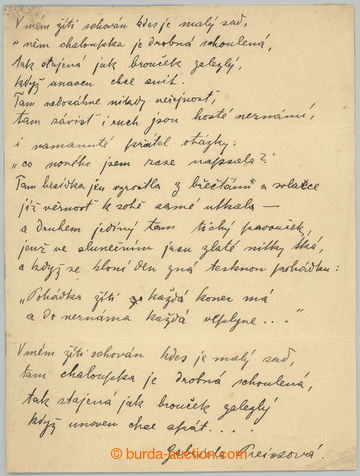 V mém žití schován kdes je malý sad,
v něm chaloupka je drobná schoulená,
tak stajená jak brouček zalezlý,
když unaven chce snít.
Tam nedosáhne nikdy veřejnost,
tam závist i ruch jsou hosté neznámí,
i namanuté přátel otázky:
„co nového jsem zase napsala?"
Tam besídka jen vyrostla z břečťanu a svlačce
již věrnost k sobě samé utkala —
a druhem jediný tam tichý pavouček,
jenž ve slunečním jasu zlaté nitky tká,
a když se kloní den zná tesknou pohádku:
„Pohádka žití každá konec má
a do neznáma každá vplyne . . ."
V mém žití schován kdes je malý sad,
tam chaloupka je drobná schoulená,
tak stajená jak brouček zalezlý
když unaven chce spát . . .
Gabriela Preissová.
burda-auction.com